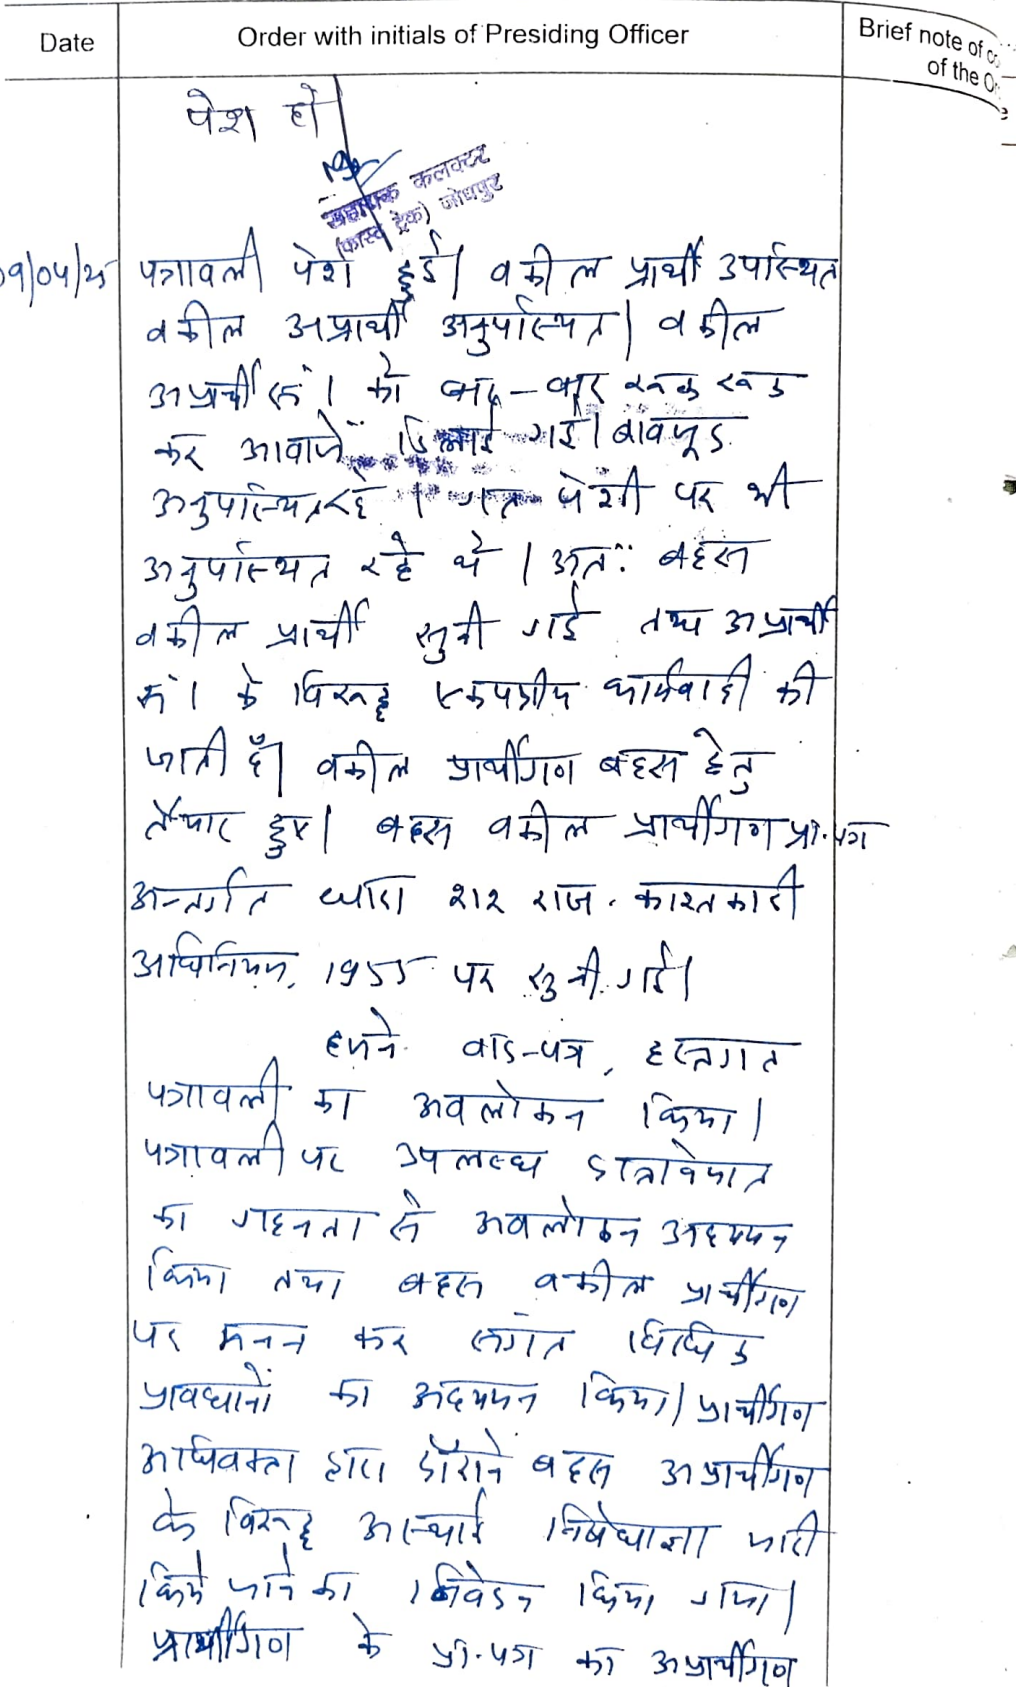 Date
Order with initials of Presiding Officer
Brief note of
of the O
पेश हो।
सहायक कलक्टर
(फास्ट ट्रेक) जोधपुर
09/04/25 पत्रावली पेश हुई। वकील प्रार्थी उपस्थित
वकील अप्रार्थी अनुपस्थित। वकील
अप्रार्थी सं 1 को बार-बार रूक रूक
कर आवाजें दिलाई गई। बावजूद
अनुपस्थित रहे। गत पेशी पर भी
अनुपस्थित रहे थे। अतः बहस
वकील प्रार्थी सुनी गई तथा अप्रार्थी
सं 1 के विरूद्ध एकपक्षीय कार्यवाही की
जाती हैं। वकील प्रार्थीगण बहस हेतु
तैयार हुए। बहस वकील प्रार्थीगण प्रा.पत्र
अन्तर्गत धारा 212 राज. काश्तकारी
अधिनियम, 1955 पर सुनी गई।
हमने वाद-पत्र, हस्तगत
पत्रावली का अवलोकन किया।
पत्रावली पर उपलब्ध दस्तावेजात
का गहनता से अवलोकन अध्ययन
किया तथा बहस वकील प्रार्थीगण
पर मनन कर संगत विधिक
प्रावधानों का अध्ययन किया। प्रार्थीगण
अधिवक्ता द्वारा दौराने बहस अप्रार्थीगण
के विरूद्ध अस्थाई निषेधाज्ञा जारी
किये जाने का निवेदन किया गया।
प्रार्थीगण के प्रा.पत्र का अप्रार्थीगण